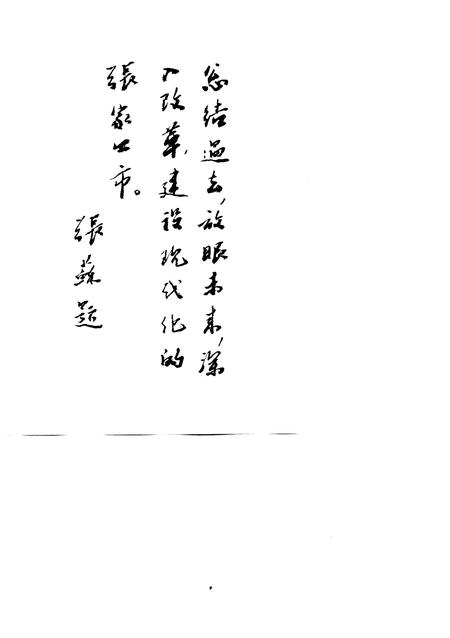 总结过去，放眼未来，深
入改革，建设现代化的
張家口市。
張蘇题